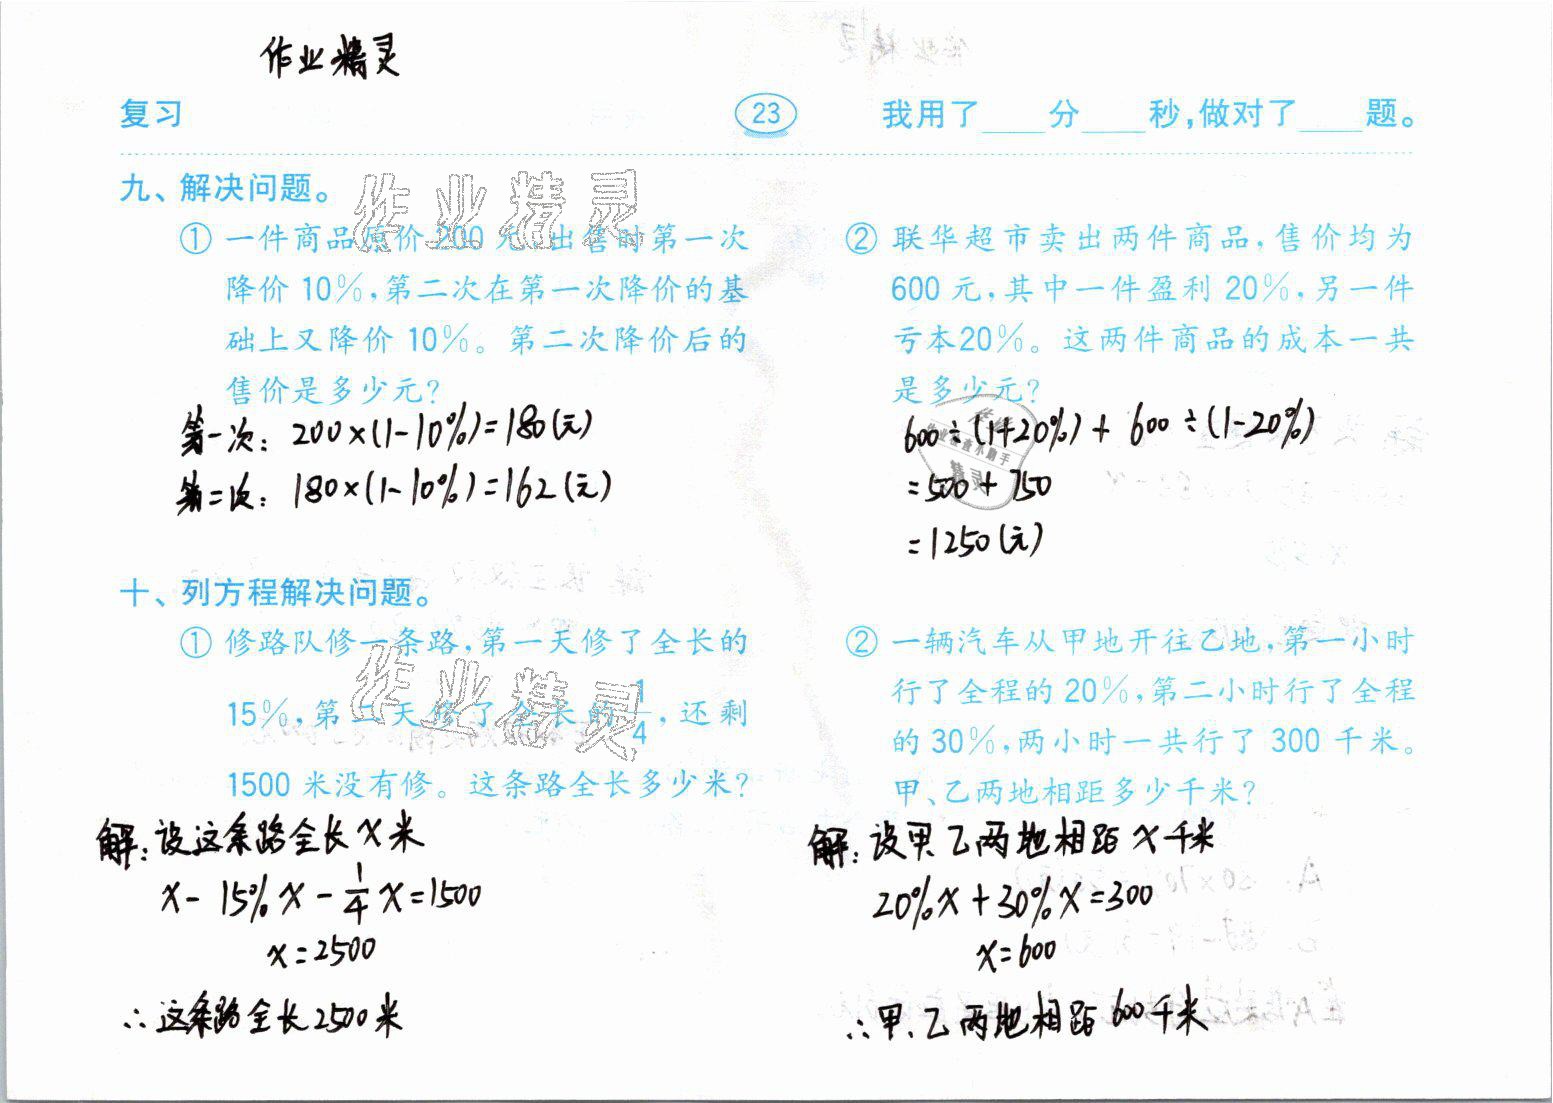 作业精灵
复习 23 我用了____分____秒,做对了____题。
九、解决问题。
① 一件商品原价200元,出售时第一次
降价10%,第二次在第一次降价的基
础上又降价10%。第二次降价后的
售价是多少元?
第一次: 200×(1-10%)=180(元)
第二次: 180×(1-10%)=162(元)
② 联华超市卖出两件商品,售价均为
600元,其中一件盈利20%,另一件
亏本20%。这两件商品的成本一共
是多少元?
600÷(1+20%)+600÷(1-20%)
=500+750
=1250(元)
十、列方程解决问题。
① 修路队修一条路,第一天修了全长的
15%,第二天修了全长的1/4,还剩
1500米没有修。这条路全长多少米?
解:设这条路全长x米
x-15%x-1/4x=1500
x=2500
∴这条路全长2500米
② 一辆汽车从甲地开往乙地,第一小时
行了全程的20%,第二小时行了全程
的30%,两小时一共行了300千米。
甲、乙两地相距多少千米?
解:设甲、乙两地相距x千米
20%x+30%x=300
x=600
∴甲、乙两地相距600千米
作业精灵
作业精灵